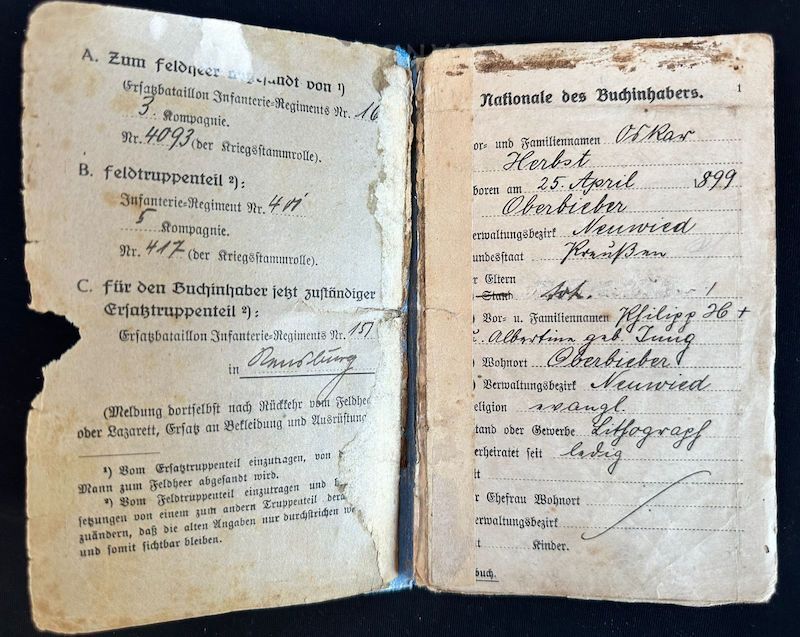 A. Zum Feldheer gesandt von ¹)
Ersatzbataillon Infanterie-Regiments Nr. 16
3 Kompagnie.
Nr. 4093 (der Kriegsstammrolle).
B. Feldtruppenteil ²):
Infanterie-Regiment Nr. 401
5 Kompagnie.
Nr. 417 (der Kriegsstammrolle).
C. Für den Buchinhaber jetzt zuständiger
Ersatztruppenteil ²):
Ersatzbataillon Infanterie-Regiments Nr. 157
in
(Meldung dortselbst nach Rückkehr vom Feldhee
oder Lazarett, Ersatz an Bekleidung und Ausrüstung
¹) Vom Ersatztruppenteil einzutragen, von
Mann zum Feldheer abgesandt wird.
²) Vom Feldtruppenteil einzutragen und
setzungen von einem zum andern Truppenteil dera
zuändern, daß die alten Angaben nur durchstrichen we
und somit sichtbar bleiben.
1
Nationale des Buchinhabers.
or- und Familiennamen Oskar
Herbst
boren am 25. April 1899
Oberbieber
erwaltungsbezirk Neuwied
undesstaat Preußen
r Eltern
Stand tot.
) Vor- u. Familiennamen Philipp H +
u. Albertine geb. Jung
) Wohnort Oberbieber
) Verwaltungsbezirk Neuwied
eligion evangl.
tand oder Gewerbe Lithograph
erheiratet seit ledig
it
r Ehefrau Wohnort
erwaltungsbezirk
t Kinder.
buch.